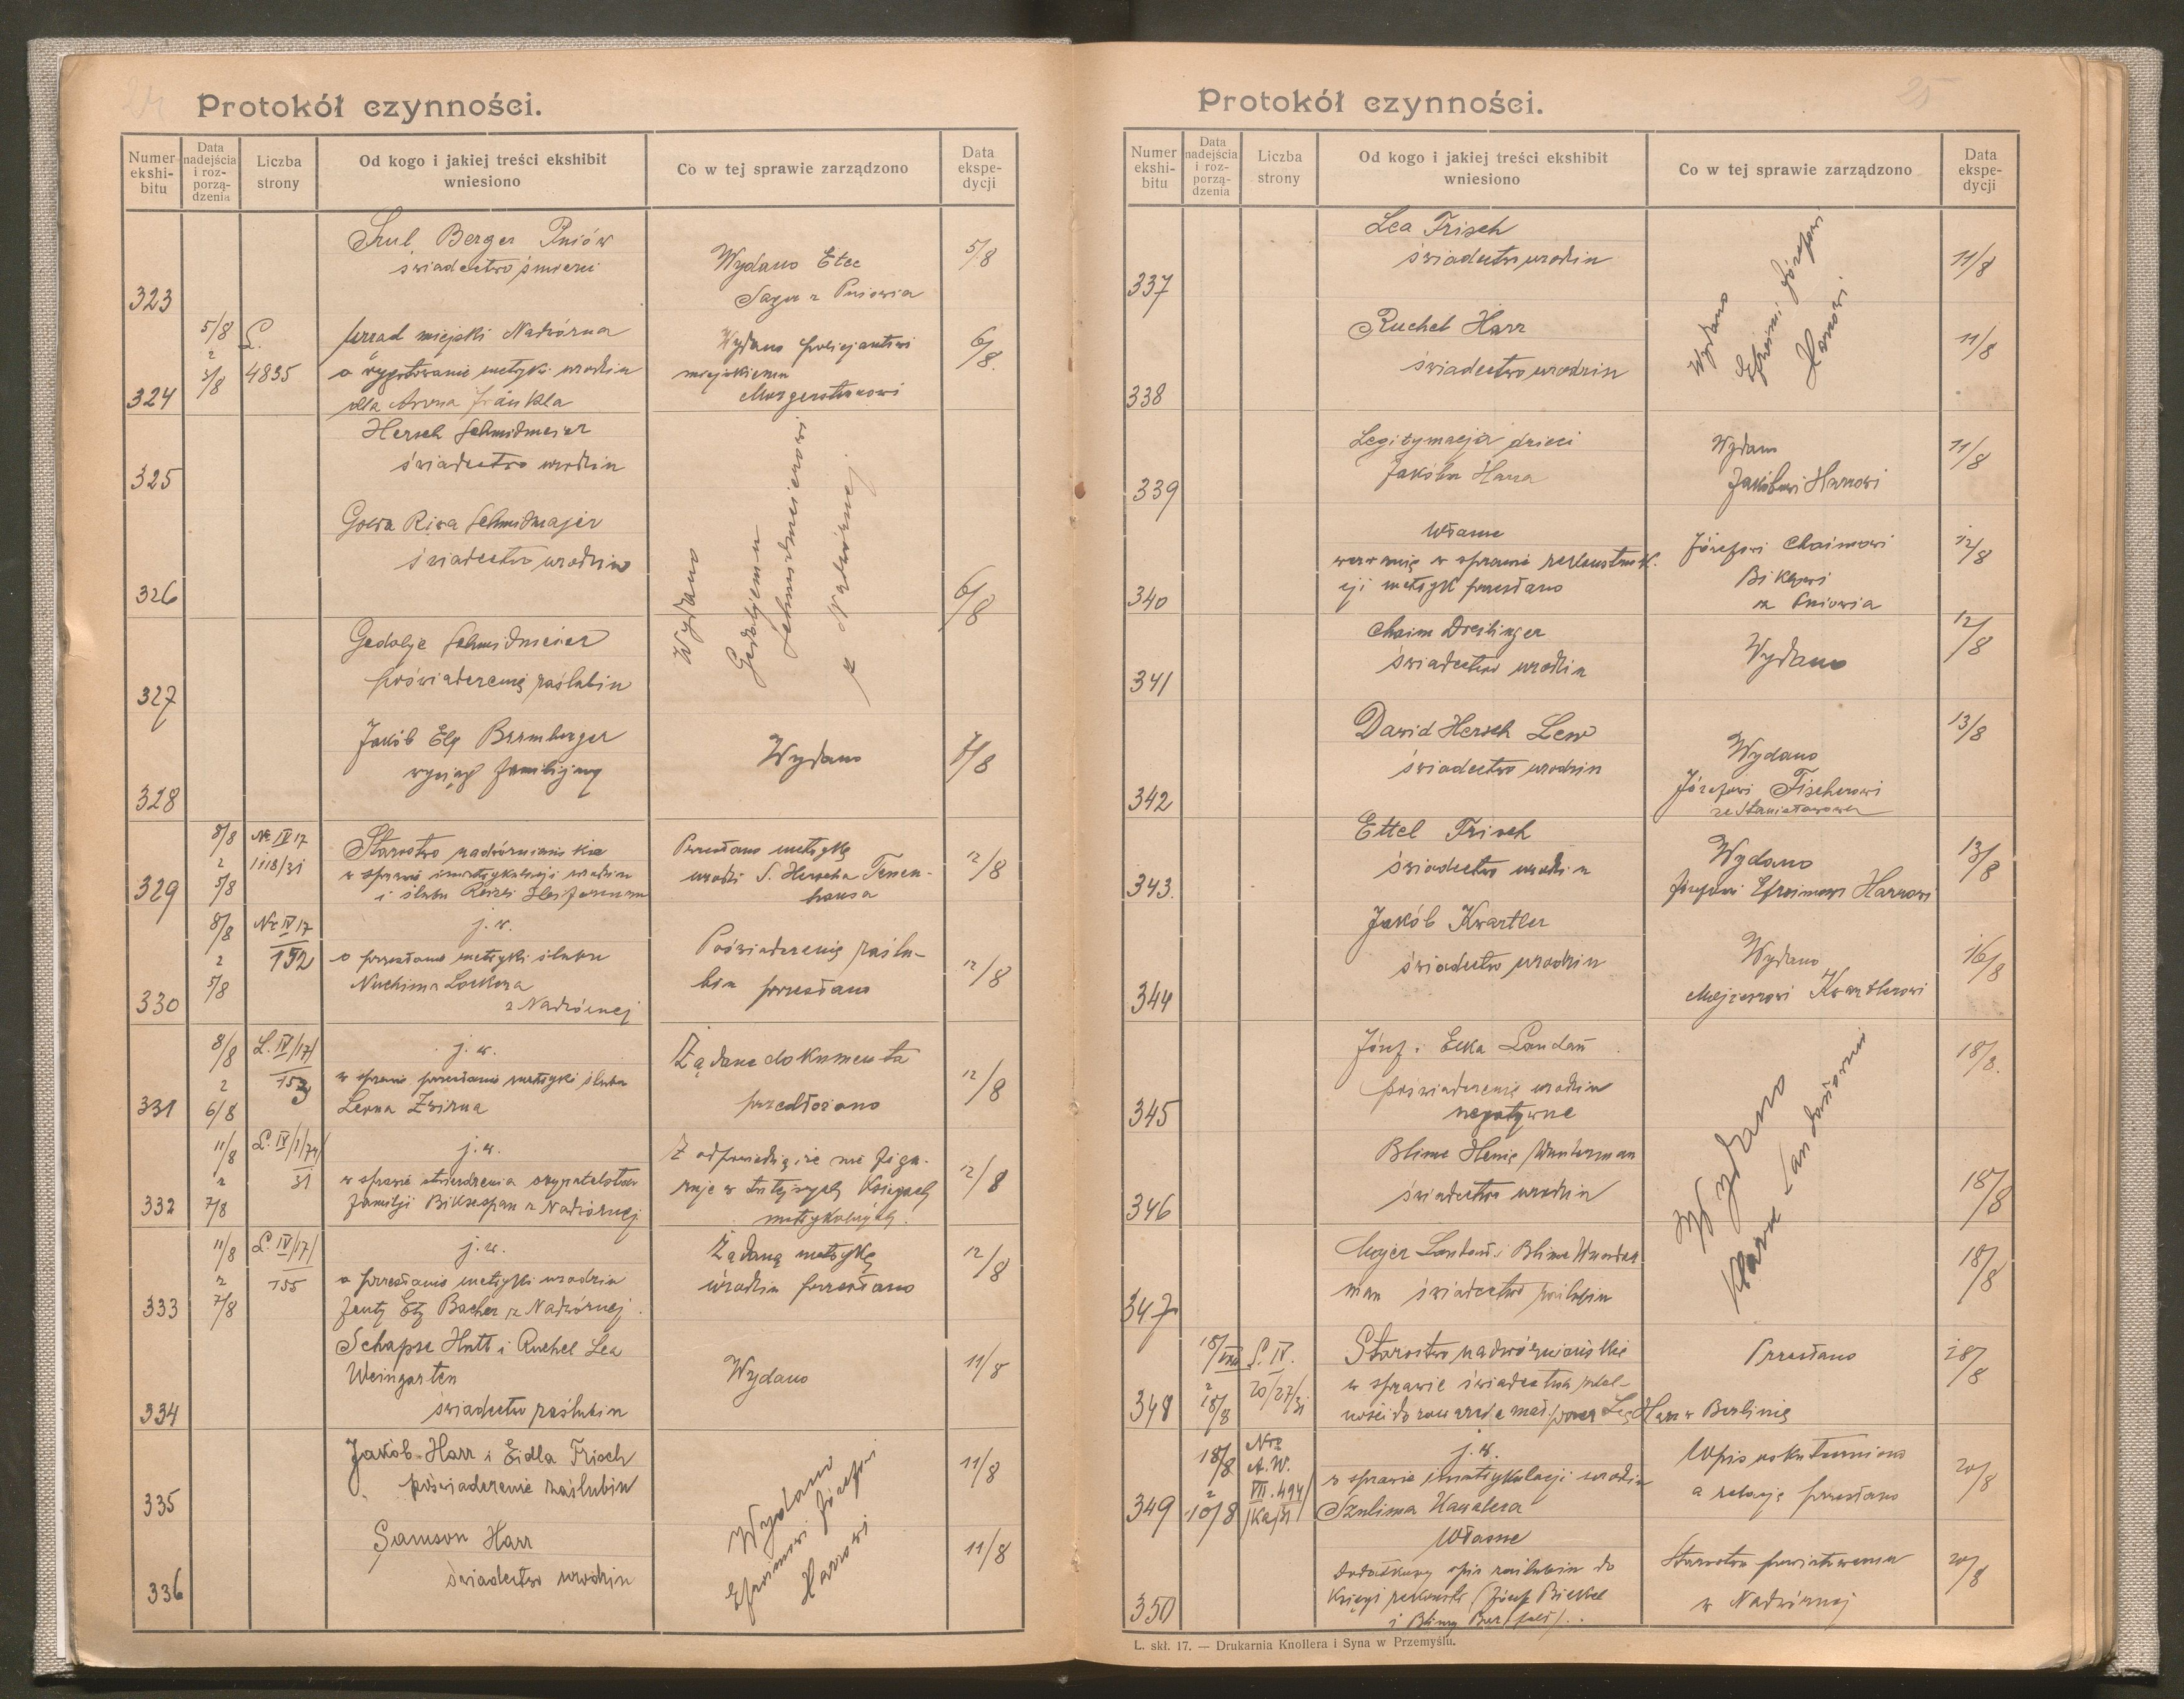 24
Protokół czynności.
Numer ekshi-bitu
Data nadejścia i roz-porzą-dzenia
Liczba strony
Od kogo i jakiej treści ekshibit wniesiono
Co w tej sprawie zarządzono
Data ekspe-dycji
323
Srul Berger Pniów
świadectwo śmierci
Wydano Etce
Sager z Pniowia
5/8
324
5/8
2
3/8
L.
4835
Urząd miejski Nadwórna
o wygotowanie metryki urodzin
dla Arona Fränkla
Wydano policjantowi
miejskiemu
Morgensternowi
6/8.
325
Hersch Schmidmeier
świadectwo urodzin
326
Golda Riwa Schmidmajer
świadectwo urodzin
Wydano
Gedaljemu
Schmidmeierowi
z Nadwórnej
6/8
327
Gedalje Schmidmeier
poświadczenie zaślubin
328
Jakób Elj Bermberger
wyciąg familijny
Wydano
7/8
329
8/8
2
5/8
Nr IV 17
1118/31
Starostwo nadwórniańskie
w sprawie imatrykulacji urodzin
i ślubu
Przesłano metrykę
urodz. S. Herscha Tenen-
hausa
12/8
330
8/8
2
5/8
Nr IV 17
152
j. w.
o przesłanie metryki ślubu
Nuchima Lockera
z Nadwórnej
Poświadczenie zaślu-
bin przesłano
12/8
331
8/8
2
6/8
L. IV/17/
153
j. w.
w sprawie przesłania metryki ślubu
Leona Zwirna
Żądane dokumenta
przedłożono
12/8
332
11/8
2
7/8
L. IV/1/74/
31
j. w.
w sprawie stwierdzenia obywatelstwa
familji Bikselspan z Nadwórnej
Z odpowiedzią że nie figu-
ruje w tutejszych Księgach
metrykalnych.
12/8
333
11/8
2
7/8
L. IV/17/
155
j. w.
o przesłanie metryki urodzin
Jenty Ety Bacher z Nadwórnej.
Żądaną metrykę
urodzin przesłano
12/8
334
Schapse Hutt i Ruchel Lea
Weingarten
świadectwo zaślubin
Wydano
11/8
335
Jakób Harr i Eidla Frisch
poświadczenie zaślubin
11/8
336
Samson Harr
świadectwo urodzin
Wydano
Efroimowi Józefowi
Harrowi
11/8
25
Protokół czynności.
Numer ekshi-bitu
Data nadejścia i roz-porzą-dzenia
Liczba strony
Od kogo i jakiej treści ekshibit wniesiono
Co w tej sprawie zarządzono
Data ekspe-dycji
337
Lea Frisch
świadectwo urodzin
11/8
338
Ruchel Harr
świadectwo urodzin
Wydano
Efroimowi Józefowi
Harrowi
11/8
339
Legitymacja dzieci
Jakóba Harra
Wydano
Jakóbowi Harrowi
11/8
340
Własne
wezwanie w sprawie rekonstruk.
cji metryk przesłano
Józefowi Chaimowi
Biklowi
z Pniowia
12/8
341
Chaim Dreilinger
świadectwo urodzin
Wydano
12/8
342
Dawid Hersch Lew
świadectwo urodzin
Wydano
Józefowi Fischerowi
ze Stanisławowa
13/8
343.
Ettel Frisch
świadectwo urodzin
Wydano
Józefowi Efroimowi Harrowi
13/8
344
Jakób Kwartler
świadectwo urodzin
Wydano
Mojżeszowi Kwartlerowi
16/8
345
Józef i Elka Landau
poświadczenie urodzin
negatywne
18/8.
346
Blime Henie Wunderman
świadectwo urodzin
Wydano
Klara Landauowna
18/8
347
Mojer Landau i Blime Wunder
man świadectwo zaślubin
18/8
348
18/VIII
2
18/8
L. IV.
20/27/31
Starostwo nadwórniańskie
w sprawie świadectwa zdol-
ności do zawarcia małż. przez Leę Harr w Berlinie
Przesłano
18/8
349
18/8
2
10/8
Nro
A. W.
VII. 494/
j. w.
w sprawie imatrykulacji urodzin
Szulima Hawalera
Wpis uskuteczniono
a relację przesłano
20/8
350
Własne
Dodatkowy opis zaślubin do
Księgi rekonstr. (Józef Bickel
i Blimy
Starostwo powiatowemu
w Nadwórnej
20/8
L. skł. 17. — Drukarnia Knollera i Syna w Przemyślu.